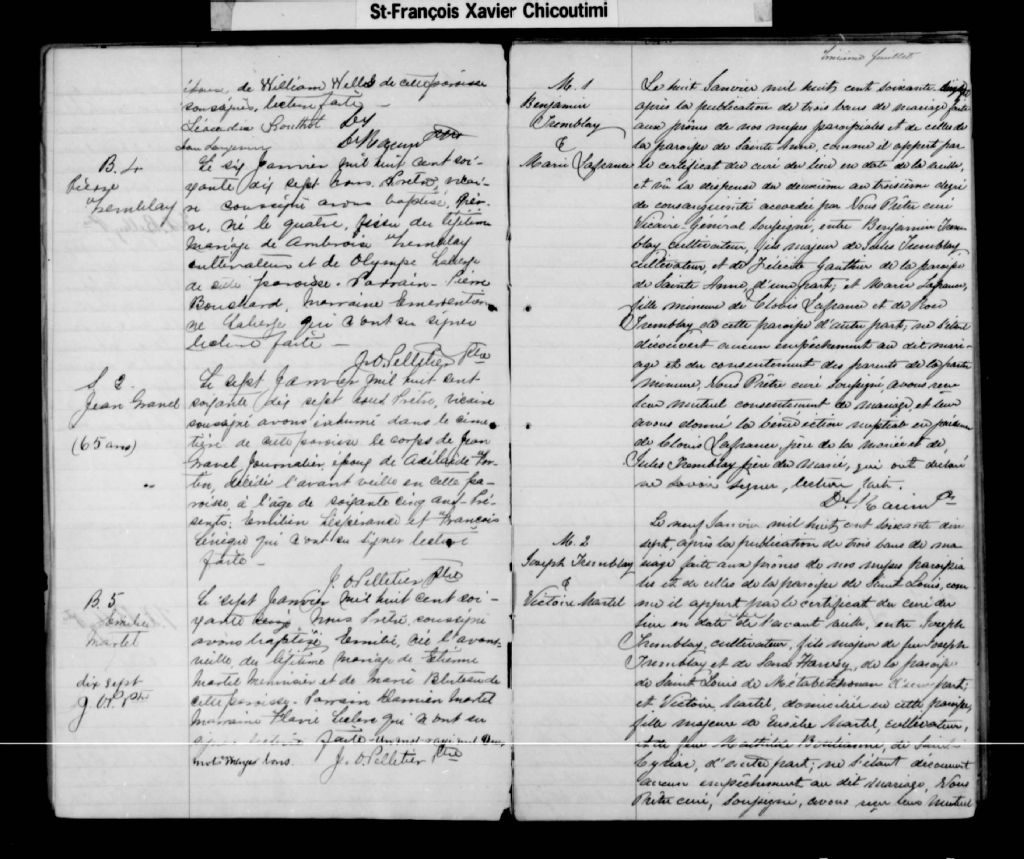 St-François Xavier Chicoutimi
épouse de William Wells de cette paroisse
soussignés, lecture faite —
Léocadie Routhot
D. Racine Ptre
B. 4
Pierre
Tremblay
Le six Janvier mil huit cent soi-
xante dix sept Nous Prêtre, vicai-
re soussigné avons baptisé, Pier-
re, né le quatre, fessu du légitime
mariage de Ambroise Tremblay
cultivateur et de Olympe Laberge
de cette paroisse. Parrain Pierre
Bouchard, marraine Emerentien-
ne Laberge qui n'ont su signer
lecture faite —
J. O. Pelletier Ptre
S. 2
Jean Gravel
(65 ans)
Le sept Janvier mil huit cent
soixante dix sept nous Prêtre, vicaire
soussigné avons inhumé dans le cime-
tière de cette paroisse le corps de Jean
Gravel Journalier, époux de Adelaide For-
tin, décédé l'avant veille en cette pa-
roisse, à l'âge de soixante cinq ans. Pré-
sents: Emilien Lespérance et François
Lévesque qui n'ont su signer lecture
faite —
J. O Pelletier Ptre
B. 5
Emilie
Martel
dix sept
J. O. P. Ptr
Le sept Janvier mil huit cent soi-
xante Nous Prêtre, soussigné
avons baptisé Emilie, née l'avant
veille, du légitime mariage de Etienne
Martel menuisier et de Marie Bluteau de
cette paroisse. Parrain Damien Martel
Marraine Flavie Leclerc qui n'ont su
signer lecture faite. Un mot rayé nul Deux
mots marges bons.
J. O. Pelletier Ptre
M. 1
Benjamin
Tremblay
&
Marie Lafrance
Le huit Janvier mil huit cent soixante dix sept
après la publication de trois bans de mariage faite
aux prônes de nos messes paroissiales et de celles de
la paroisse de Sainte Anne, comme il appert par
le certificat du curé du lieu en date de la veille,
et vû la dispense du deuxième au troisième degré
de consanguinité accordée par Nous Prêtre curé
Vicaire-Général soussigné, entre Benjamin Trem-
blay cultivateur, fils majeur de Jules Tremblay
cultivateur, et de Félicité Gauthier de la paroisse
de Sainte Anne, d'une part; et Marie Lafrance,
fille mineure de Clovis Lafrance et de Rose
Tremblay de cette paroisse d'autre part; ne s'étant
découvert aucun empêchement au dit mari-
age et du consentement des parents de la partie
mineure, Nous Prêtre curé soussigné, avons reçu
leur mutuel consentement de mariage, et leur
avons donné la bénédiction nuptiale en présence
de Clovis Lafrance, père de la mariée et de
Jules Tremblay père du Marié, qui ont déclaré
ne savoir signer, lecture faite.
D. Racine Ptr
M. 2
Joseph Tremblay
&
Victoire Martel
Le neuf Janvier mil huit cent soixante dix
sept, après la publication de trois bans de ma-
riage faite aux prônes de nos messes paroissia-
les et de celles de la paroisse de Saint Louis, com-
me il appert par le certificat du curé du
lieu en date de l'avant veille, entre Joseph
Tremblay, cultivateur, fils majeur de feu Joseph
Tremblay et de Sara Harvey, de la paroisse
de Saint Louis de Métabetchouan d'une part;
et Victoire Martel, domiciliée en cette paroisse,
fille majeure de Eusèbe Martel, cultivateur,
et de feue Mathilde Boulianne, de Saint
Cyriac, d'autre part; ne s'étant découvert
aucun empêchement au dit mariage, Nous
Prêtre curé, soussigné, avons reçu leur mutuel